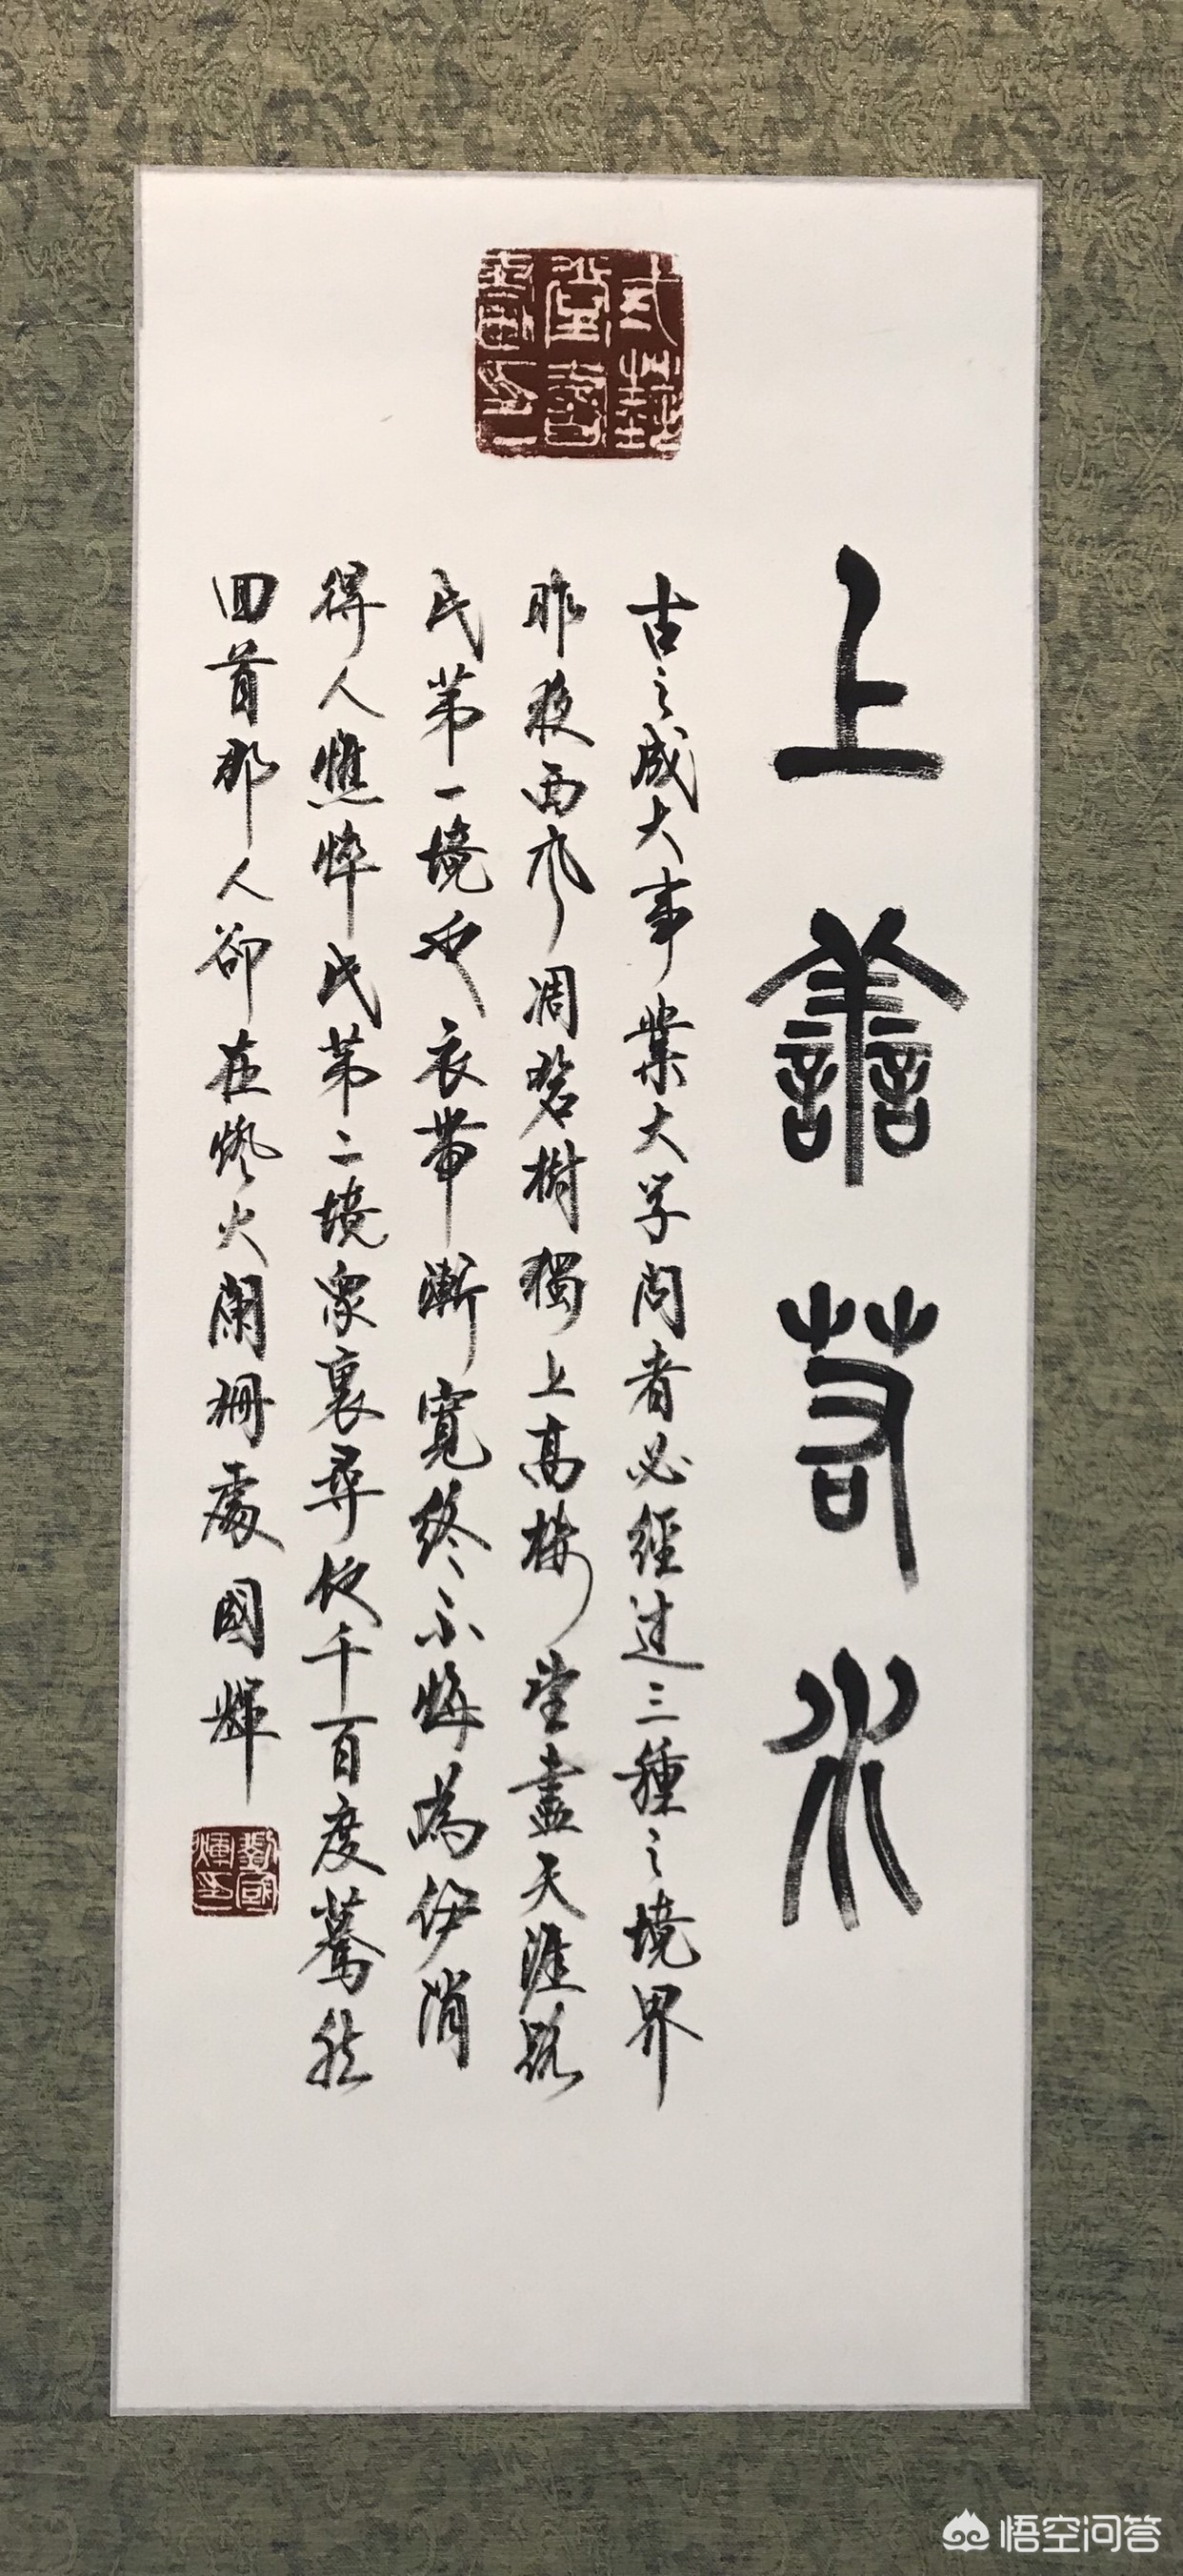 上善若水
古之成大事業大学问者必經过三種之境界
昨夜西风凋碧樹獨上高楼望盡天涯路
此第一境也衣帶漸寬終不悔為伊消
得人憔悴此第二境衆裏尋他千百度驀然
回首那人卻在燈火闌珊處國輝
劉國煇印
悟空问答